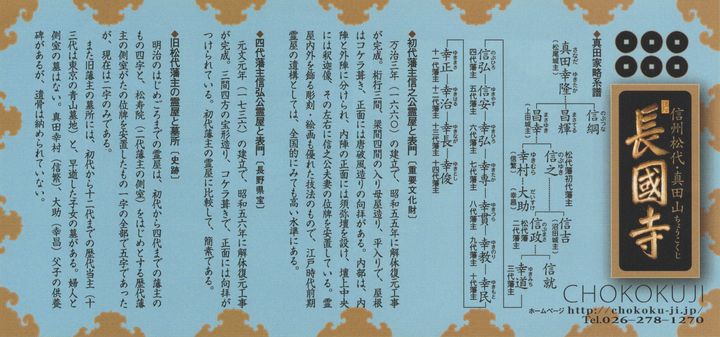 信州松代・真田山
ちょうこくじ
長國寺
CHOKOKUJI
ホームページ http://chokoku-ji.jp/
Tel.026-278-1270
◆真田家略系譜
真田幸隆
さなだ ゆきたか
(松尾城主)
信綱
のぶつな
昌輝
まさてる
昌幸
まさゆき
(上田城主)
松代藩初代藩主
信之
のぶゆき
幸村
ゆきむら
(信繁)
大助
だいすけ
(幸昌)
信吉
のぶよし
(沼田城主)
信政
のぶまさ
松代藩
二代藩主
信就
幸道
ゆきみち
三代藩主
信弘
のぶひろ
四代藩主
信安
のぶやす
五代藩主
幸弘
ゆきひろ
六代藩主
幸専
七代藩主
幸貫
ゆきつら
八代藩主
幸教
ゆきのり
九代藩主
幸民
ゆきもと
十代藩主
幸正
ゆきまさ
十一代藩主
幸治
ゆきはる
十二代藩主
幸長
ゆきなが
十三代藩主
幸俊
ゆきとし
十四代藩主
◆初代藩主信之公霊屋と表門〔重要文化財〕
万治三年(一六六〇)の建立で、昭和五五年に解体復元工事
が完成。桁行三間、梁間四間の入り母屋造り、平入りで、屋根
はコケラ葺き、正面には唐破風造りの向拝がある。内部は、内
陣と外陣に分けられ、内陣の正面には須弥壇を設け、壇上中央
には釈迦像、その左右に信之公夫妻の位牌を安置している。霊
屋内外を飾る彫刻、絵画も優れた技法のもので、江戸時代前期
霊屋の遺構としては、全国的にみても高い水準にある。
◆四代藩主信弘公霊屋と表門〔長野県宝〕
元文元年(一七三六)の建立で、昭和五三年に解体復元工事
が完成。三間四方の宝形造り、コケラ葺きで、正面には向拝が
つけられている。初代藩主の霊屋に比較して、簡素である。
◆旧松代藩主の霊屋と墓所(史跡)
明治のはじめごろまでの霊屋は、初代から四代までの藩主の
もの四字と、松寿院(二代藩主の側室)をはじめとする歴代藩
主の側室がたの位牌を安置したもの一字の全部で五字であった
が、現在は二字のみである。
また旧藩主の墓所には、初代から十二代までの歴代当主(十
三代は東京の青山墓地)と、早逝した子女の墓がある。婦人と
側室の墓はない。真田幸村(信繁)、大助(幸昌)父子の供養
碑があるが、遺骨は納められていない。